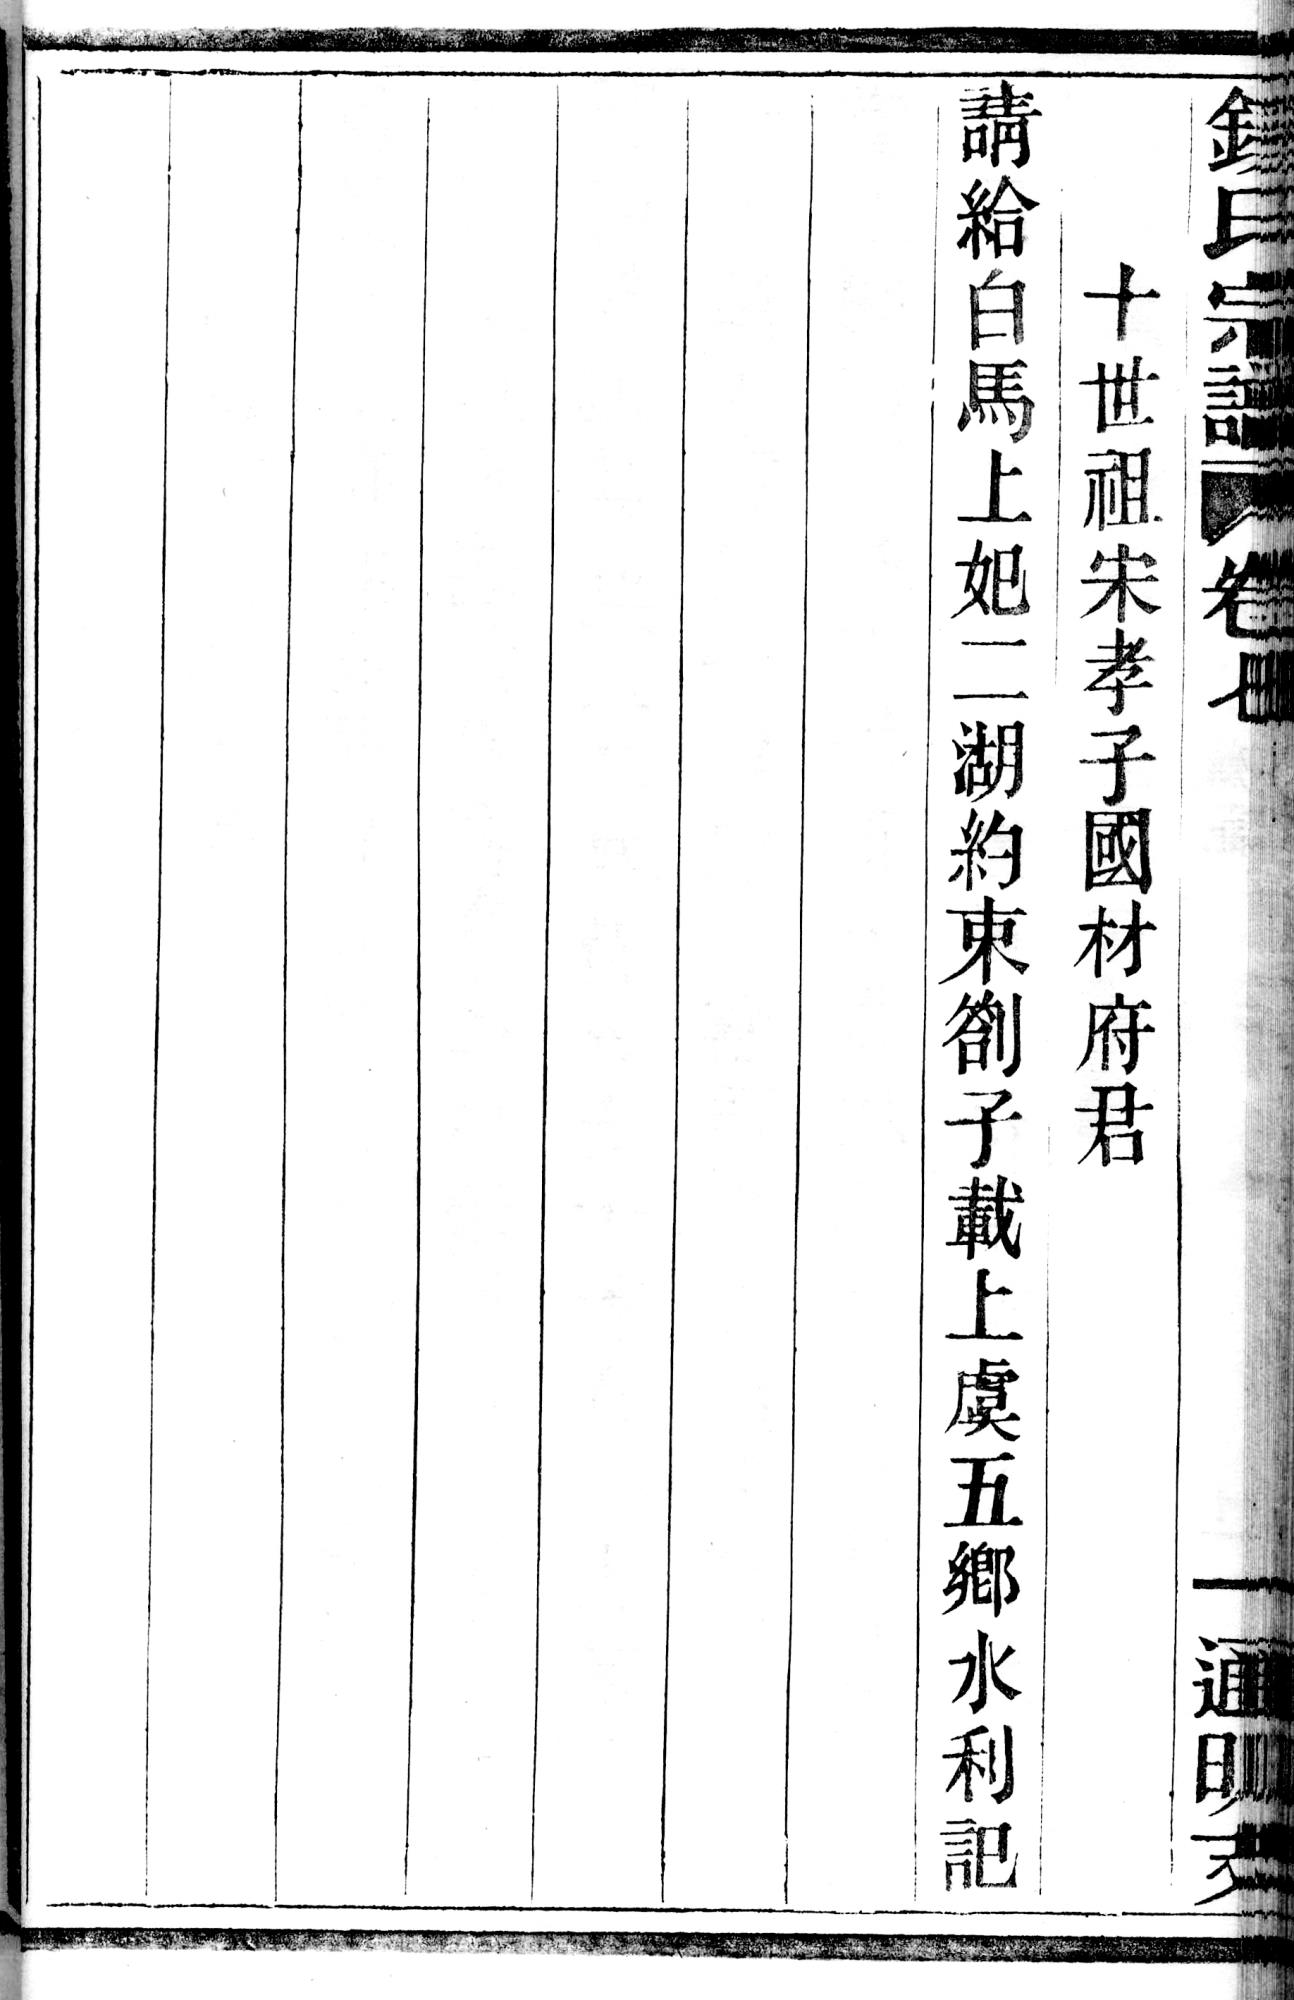 錢氏宗譜 卷七 一 通明支
十世祖宋孝子國材府君
請給白馬上妃二湖約束劄子載上虞五鄉水利記